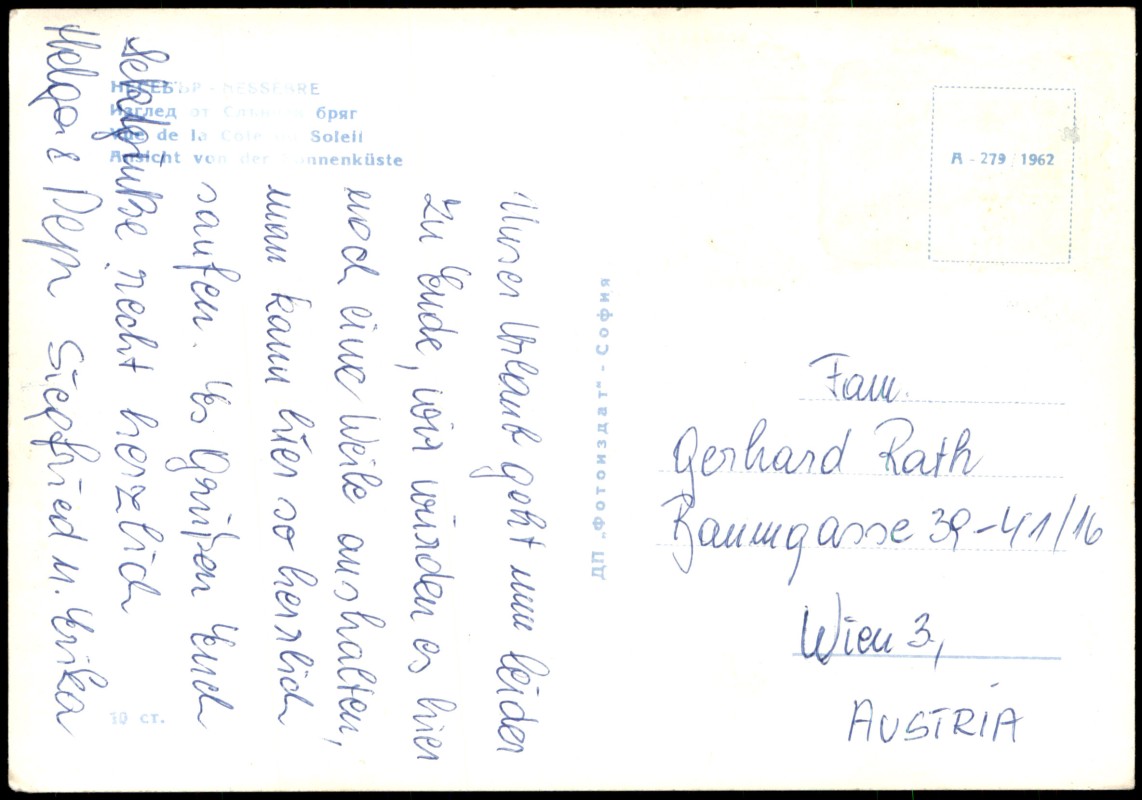 НЕСЕБЪР - NESSEBRE
Изглед от Слънчев бряг
Vue de la Côte du Soleil
Ansicht von der Sonnenküste
Unser Urlaub geht nun leider
zu Ende, wir würden es hier
noch eine Weile aushalten,
man kann hier so herrlich
saufen. Es grüßen Euch
recht herzlich
Helga & Pepi Siegfried u. Erika
10 ст.
ДП „Фотоиздат" - София
А - 279 / 1962
Fam.
Gerhard Rath
Baumgasse 39-41/16
Wien 3,
AUSTRIA